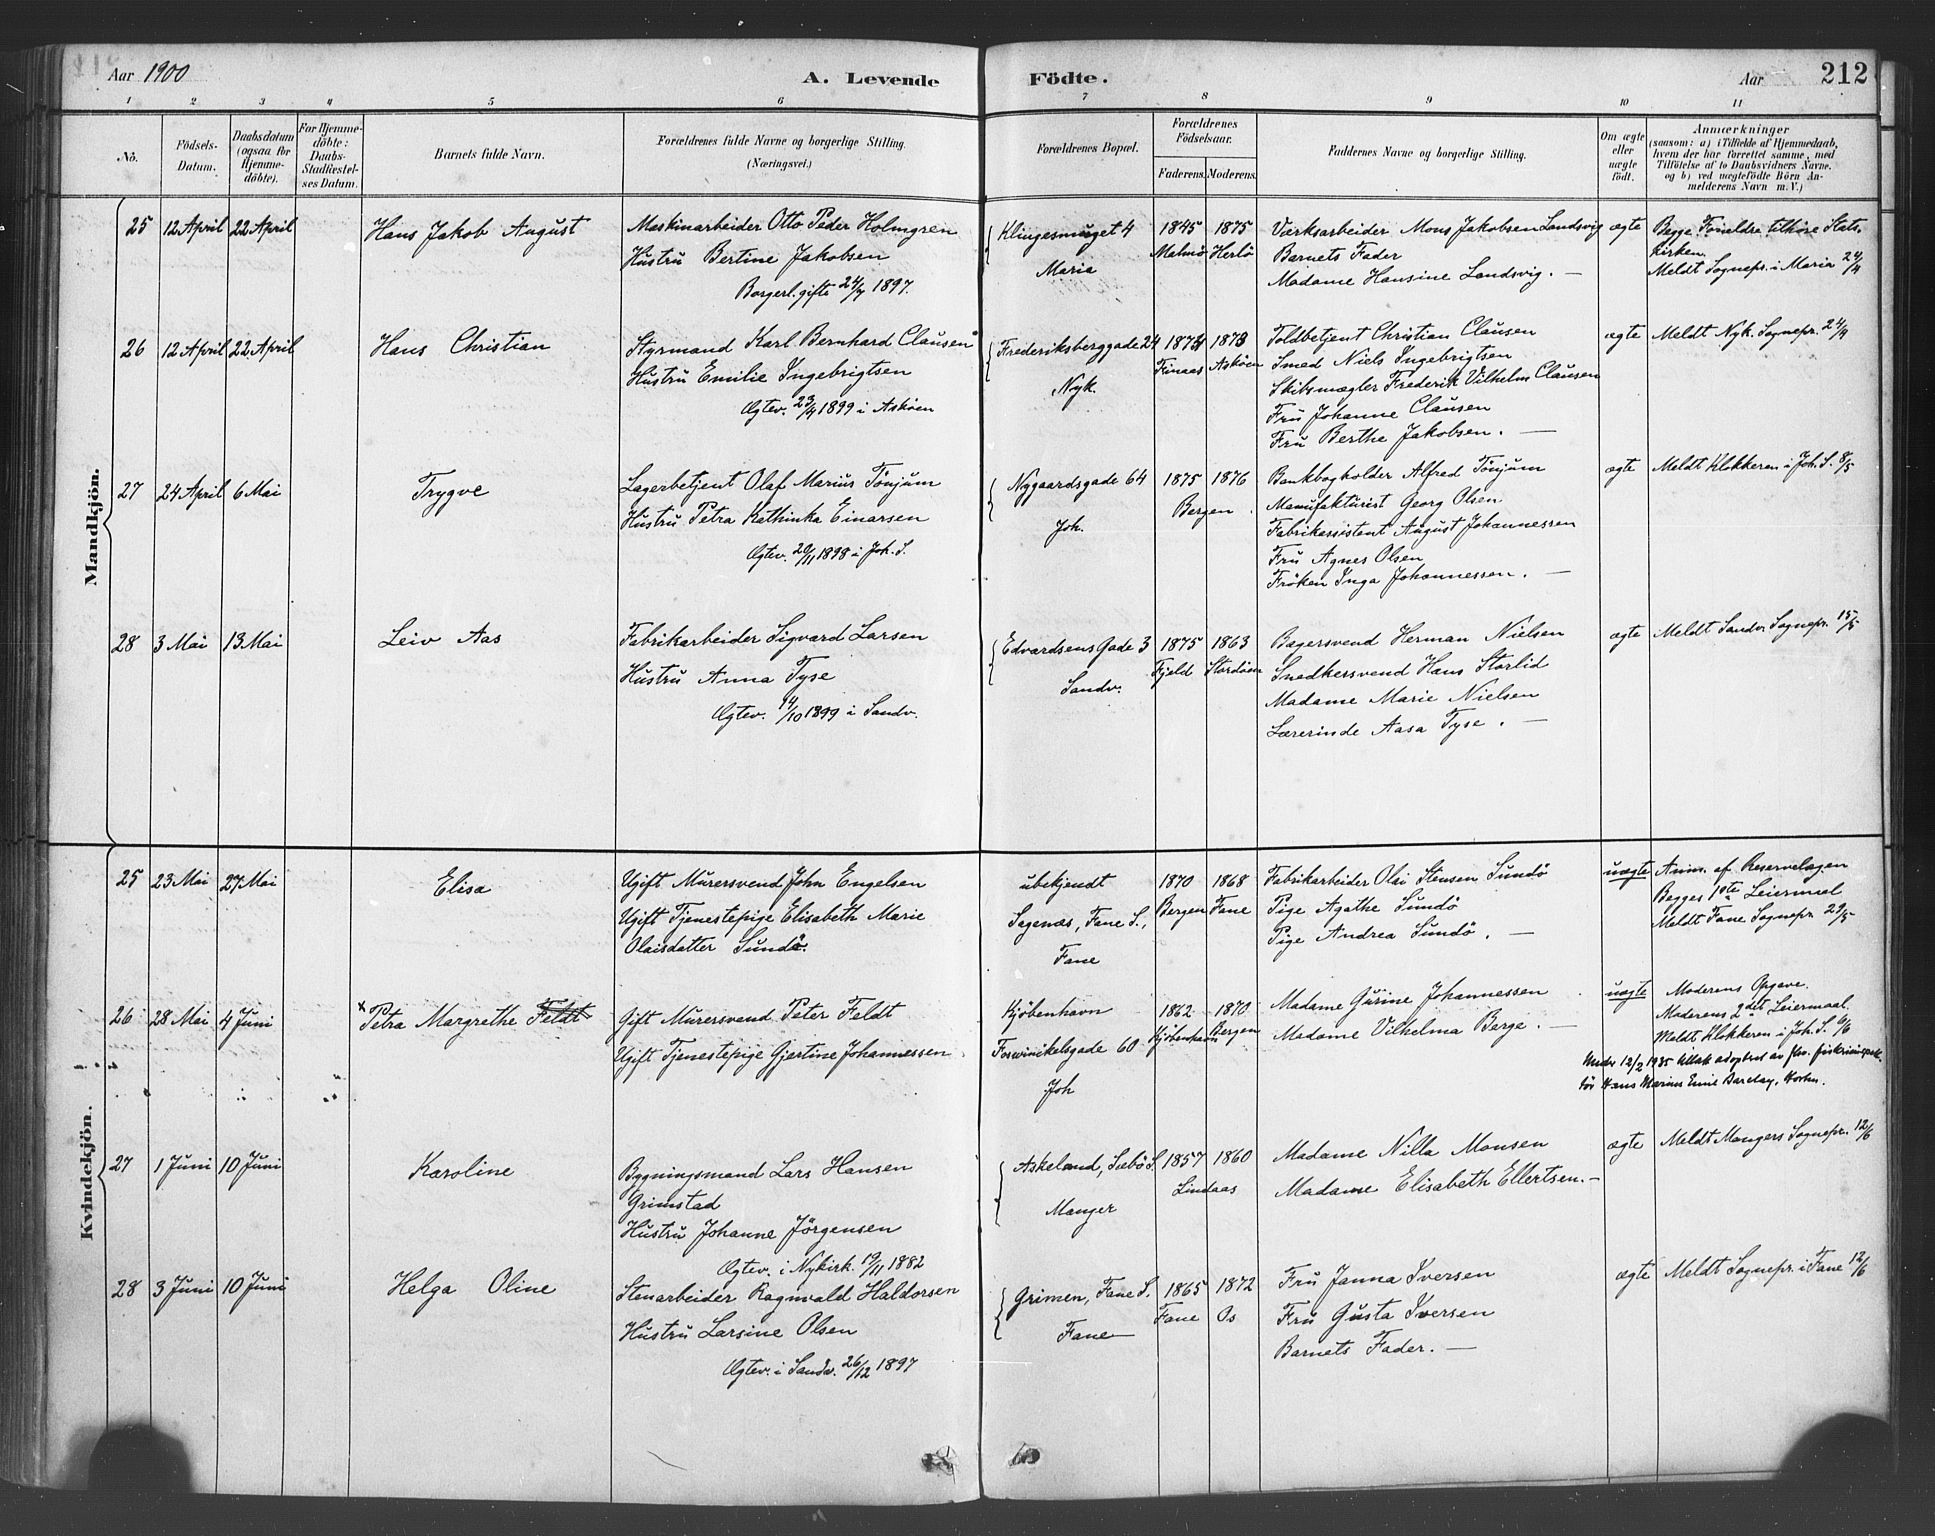 Aar 1900
A. Levende
Födte.
Aar
212
1 2 3 4 5 6 7 8 9 10 11
No.
Födsels-
Datum.
Daabsdatum
(ogsaa for
Hjemme-
döbte).
For Hjemme-
döbte:
Daabs-
Stadfæstel-
ses Datum.
Barnets fulde Navn.
Forældrenes fulde Navne og borgerlige Stilling.
(Næringsvei.)
Forældrenes Bopæl.
Forældrenes
Födselsaar.
Faderens. Moderens.
Faddernes Navne og borgerlige Stilling.
Om ægte
eller
uægte
født.
Anmærkninger
(saasom: a) i Tilfælde af Hjemmedaab,
hvem der har forrettet samme, med
Tilföielse af to Daabsvidners Navne.
og b) ved uægtefödte Börn An-
melderens Navn m. V.)
Mandkjön.
25 12 April 22 April
Hans Jakob August
Maskinarbeider Otto Peder Holmgren
Hustru Bertine Jakobsen
Borgerl. gifte 24/7 1897.
Klingesmuget 4
Maria
1845 1875
Malmö Herlö
Værksarbeider Mons Jakobsen Landsvig
Barnets Fader
Madame Hansine Landsvig. —
ægte
Begge Forældre tilhöre Stats-
kirken.
Meldt Sognepr. i Maria 24/4
26 12 April 22 April
Hans Christian
Styrmand Karl Bernhard Clausen
Hustru Emilie Ingebrigtsen
Ægtev. 23/4 1899 i Asköen
Frederiksberggade 24
Nyk.
1874 1873
Finaas Asköen
Toldbetjent Christian Clausen
Smed Niels Ingebrigtsen
Skibsmægler Frederik Vilhelm Clausen
Fru Johanne Clausen
Fru Berthe Jakobsen. —
ægte
Meldt Nyk. Sognepr. 24/4
27 24 April 6 Mai
Trygve
Lagerbetjent Olaf Marius Tönjum
Hustru Petra Kathinka Einarsen
Ægtev. 20/11 1898 i Joh. S.
Nygaardsgade 64
Joh.
1875 1876
Bergen
Bankbogholder Alfred Tönjum
Manufakturist Georg Olsen
Fabrikassistent August Johannessen
Fru Agnes Olsen
Fröken Inga Johannessen. —
ægte
Meldt Klokkeren i Joh. S. 8/5
28 3 Mai 13 Mai
Leiv Aas
Fabrikarbeider Sigvard Larsen
Hustru Anna Tyse
Ægtev. 14/10 1899 i Sandv.
Edvardsens Gade 3
Sandv.
1875 1863
Fjeld Stordöen
Bagersvend Herman Nielsen
Snedkersvend Hans Storlid
Madame Marie Nielsen
Lærerinde Aasa Tyse. —
ægte
Meldt Sandv. Sognepr. 15/5
Kvindekjön.
25 23 Mai 27 Mai
Elisa
Ugift Murersvend John Engelsen
Ugift Tjenestepige Elisabeth Marie
Olaisdatter Sundö.
ubekjendt
Sagenæs, Fane S.,
Fane
1870 1868
Bergen Fane
Fabrikarbeider Olai Stensen Sundö
Pige Agathe Sundö
Pige Andrea Sundö. —
uægte
Anm. af Reservelægen
Begges 1ste Leiermaal
Meldt Fane Sognepr. 29/5
26 28 Mai 4 Juni
× Petra Margrethe Feldt
Gift Murersvend Peter Feldt
Ugift Tjenestepige Gjertine Johannessen
Kjöbenhavn
60
Joh
1862 1870
Kjöbenhavn Bergen
Madame Gurine Johannessen
Madame Vilhelma Berge. —
uægte
Moderens Opgave.
Moderens 2det Leiermaal
Meldt Klokkeren i Joh. S. 6/6
Under 12/2 1935 tillatt adoptert av
Hans Marius Emil Barclay,
27 1 Juni 10 Juni
Karoline
Bygningsmand Lars Hansen
Grimstad
Hustru Johanne Jörgensen
Ægtev. i Nykirk. 19/11 1882
Askeland, Sæbö S.
Manger
1857 1860
Lindaas
Madame Nilla Monsen
Madame Elisabeth Ellertsen. —
ægte
Meldt Mangers Sognepr. 12/6
28 3 Juni 10 Juni
Helga Oline
Stenarbeider Ragnvald Haldorsen
Hustru Larsine Olsen
Ægtev. i Sandv. 26/12 1897
Grimen, Fane S.
Fane
1865 1872
Fane Os
Fru Janna Iversen
Fru Gusta Iversen
Barnets Fader. —
ægte
Meldt Sognepr. i Fane 12/6